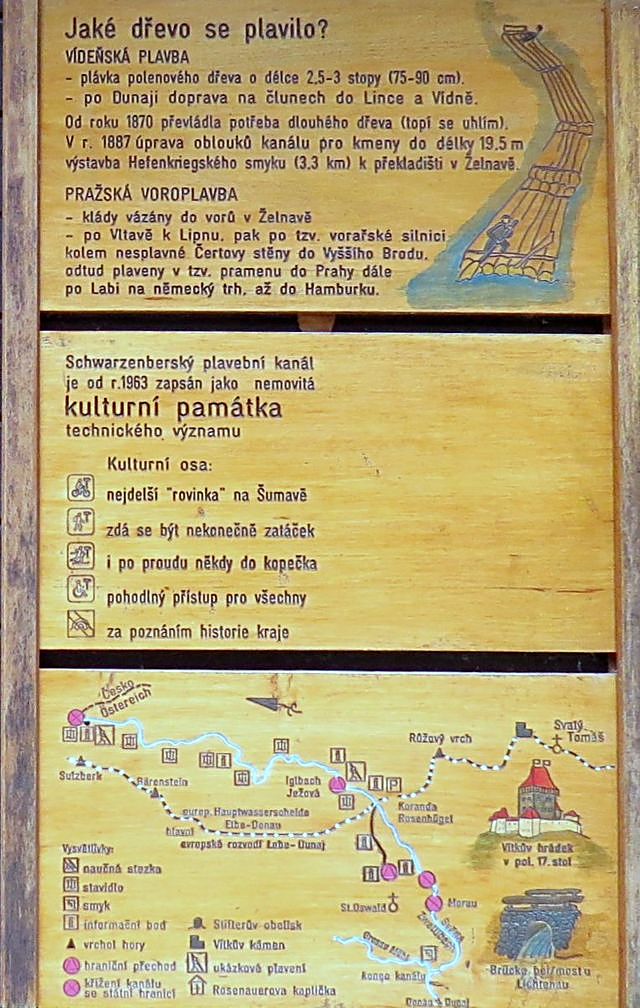 Jaké dřevo se plavilo?
VÍDEŇSKÁ PLAVBA
- plávka polenového dřeva o délce 2,5-3 stopy (75-90 cm).
- po Dunaji doprava na člunech do Lince a Vídně.
Od roku 1870 převládla potřeba dlouhého dřeva (topí se uhlím).
V r. 1887 úprava oblouků kanálu pro kmeny do délky 19,5 m
výstavba Hefenkriegského smyku (3,3 km) k překladišti v Želnavě.
PRAŽSKÁ VOROPLAVBA
- klády vázány do vorů v Želnavě
- po Vltavě k Lipnu, pak po tzv. vorařské silnici
kolem nesplavné Čertovy stěny do Vyššího Brodu,
odtud plaveny v tzv. pramenu do Prahy dále
po Labi na německý trh, až do Hamburku.
Schwarzenberský plavební kanál
je od r.1963 zapsán jako nemovitá
kulturní památka
technického významu
Kulturní osa:
nejdelší "rovinka" na Šumavě
zdá se být nekonečně zatáček
i po proudu někdy do kopečka
pohodlný přístup pro všechny
za poznáním historie kraje
Česko
Östereich
Svatý
Tomáš
Růžový vrch
Sulzberk
Bärenstein
Iglbach
Ježová
Koranda
Rosenhügel
europ. Hauptwasserscheide
Elbe-Donau
hlavní
evropské rozvodí Labe-Dunaj
Vítkův hrádek
v pol. 17.stol
Vysvětlivky:
naučná stezka
stavidlo
smyk
informační bod
vrchol hory
hraniční přechod
křížení kanálu
se státní hranicí
Stifterův obelisk
Vítkův kámen
ukázkové plavení
Rosenauerova kaplička
St.Oswald
Morau
Grosse Mühl
Konec kanálu
Donau
Brücke bei/most u
Lichtenau